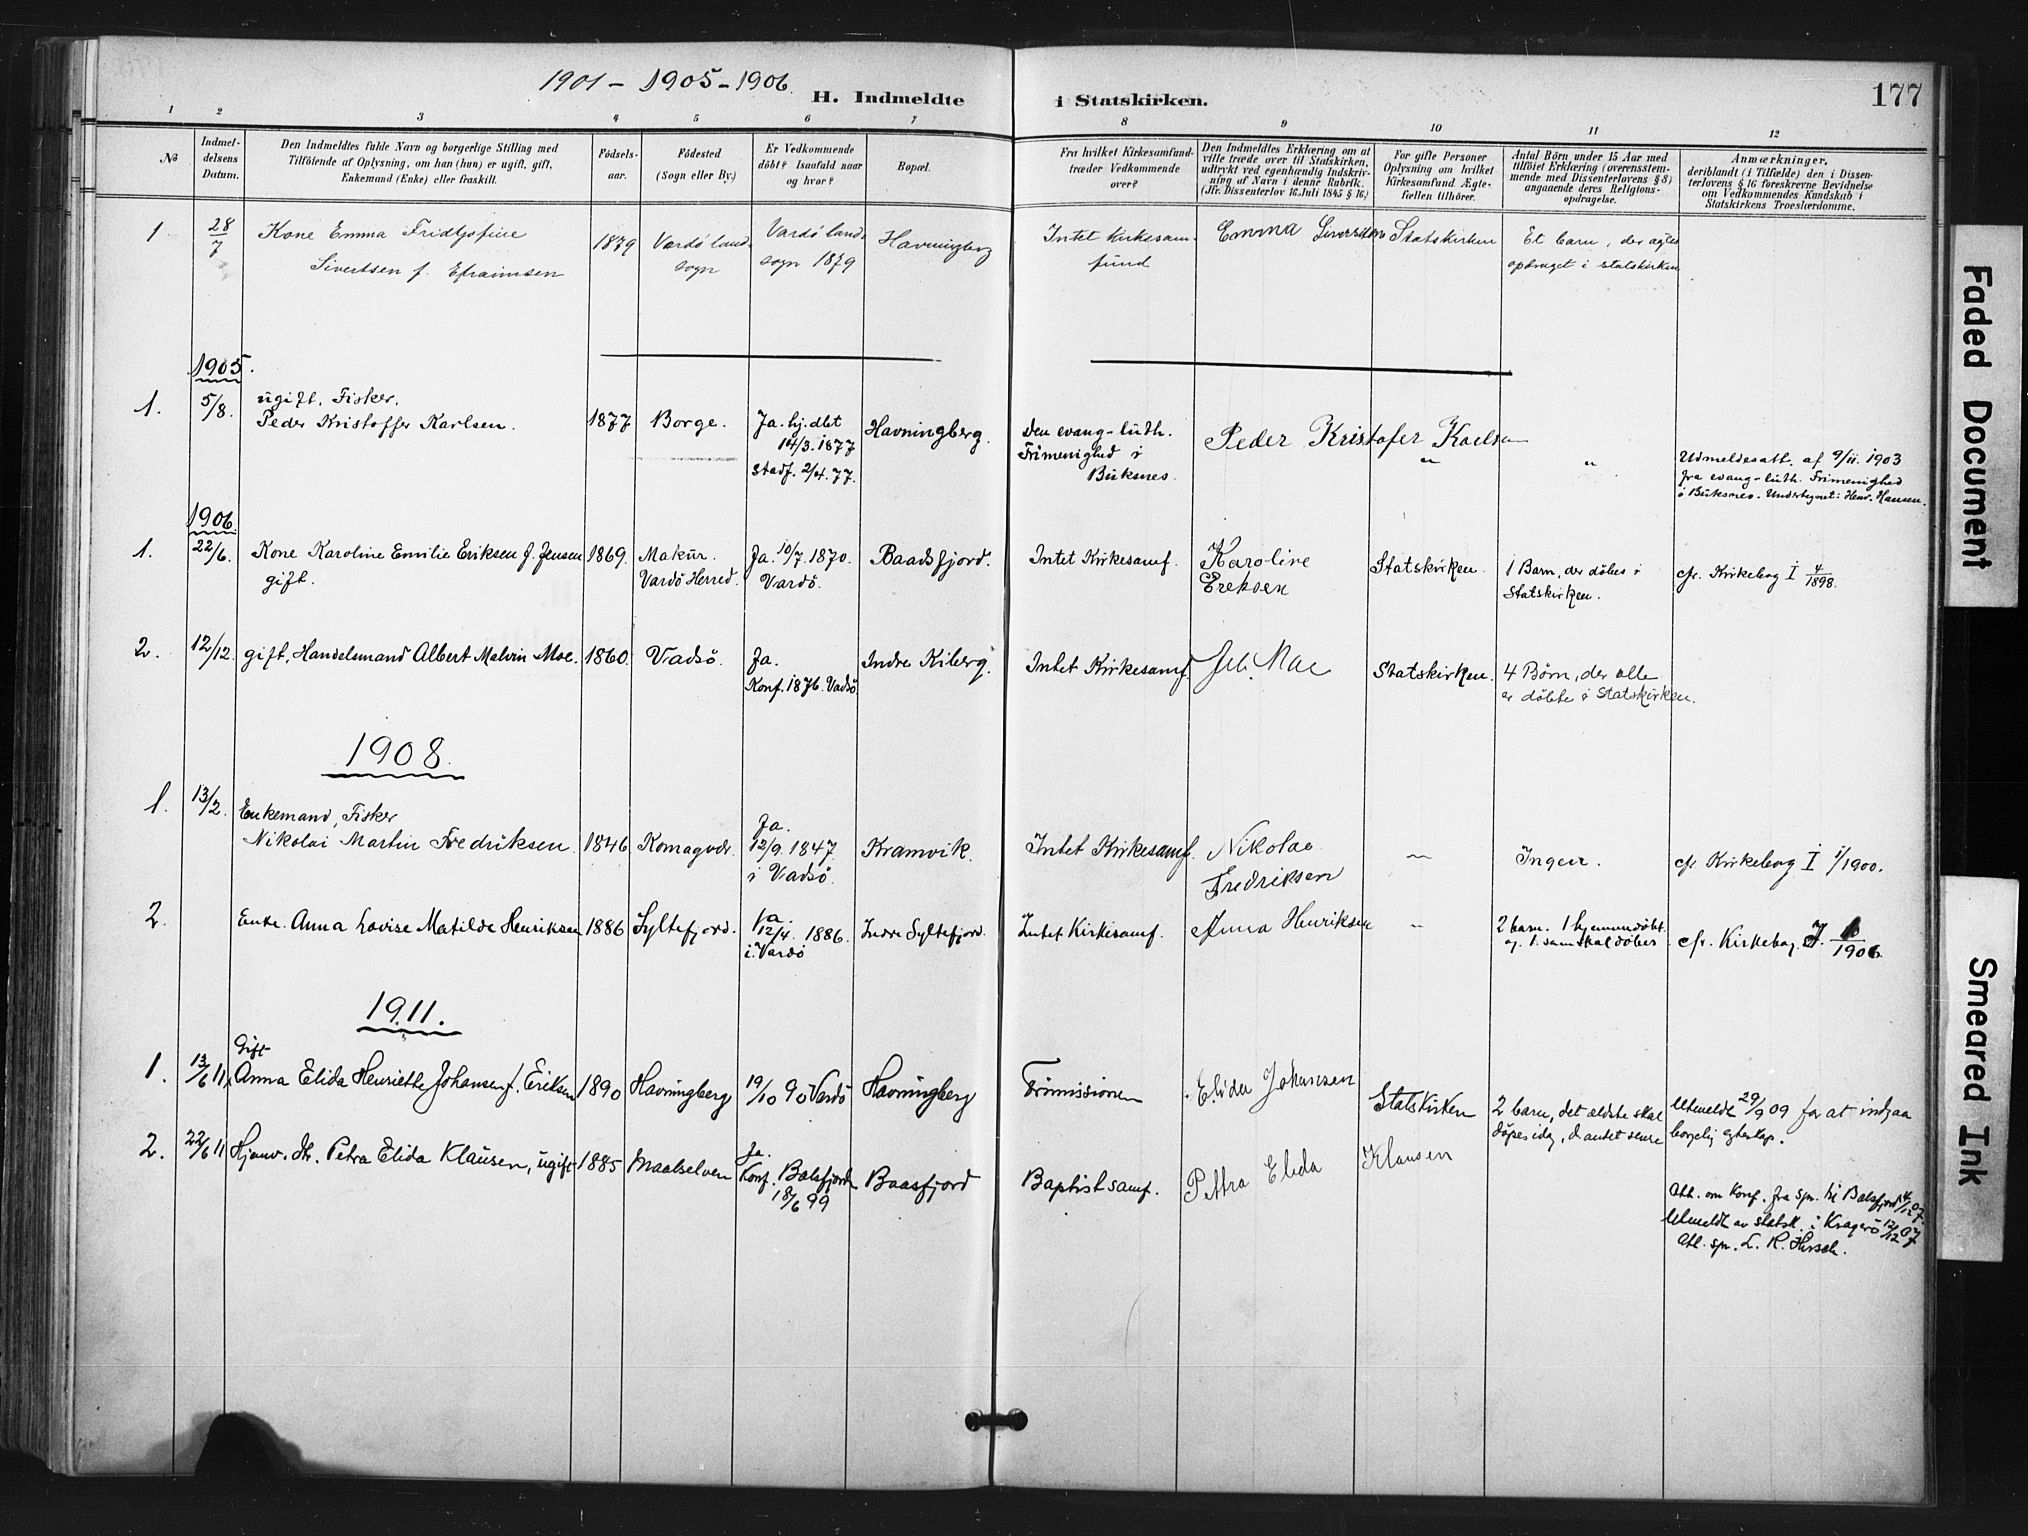 1901 - 1905 - 1906
H. Indmeldte i Statskirken.
177
1 2 3 4 5 6 7 8 9 10 11 12
No
Indmel-
delsens
Datum.
Den Indmeldtes fulde Navn og borgerlige Stilling med
Tilföiende af Oplysning, om han (hun) er ugift, gift,
Enkemand (Enke) eller fraskilt.
Födsels-
aar.
Födested
(Sogn eller By.)
Er Vedkommende
döbt? Isaafald naar
og hvor?
Bopæl.
Fra hvilket Kirkesamfund
træder Vedkommende
over?
Den Indmeldtes Erklæring om at
ville træde over til Statskirken,
udtrykt ved egenhændig Indskriv-
ning af Navn i denne Rubrik.
(Jfr. Dissenterlov 16. Juli 1845 § 16.)
For gifte Personer
Oplysning om hvilket
Kirkesamfund Ægte-
fællen tilhörer.
Antal Börn under 15 Aar med
tilföiet Erklæring (overensstem-
mende med Dissenterlovens § 8)
angaaende deres Religions-
opdragelse.
Anmærkninger,
deriblandt (i Tilfælde) den i Dissen-
terlovens § 16 foreskrevne Bevidnelse
om Vedkommendes Kundskab i
Statskirkens Troeslærdomme.
1
28/7
Kone Emma Fridtjofine
Sivertsen f. Efraimsen
1879
Vardö land-
sogn
Vardö land-
sogn 1879
Havningberg
Intet Kirkesam-
fund
Emma Sivertsen
Statskirken
Et barn, der agtes
opdraget i statskirken
1905.
1.
5/8.
ugift, Fisker.
Peder Kristoffer Karlsen.
1877
Borge.
Ja. hj. dbt
14/3. 1877
Stadf. 2/4. 77.
Havningberg.
Den evang-luth.
Frimenighed i
Buksnes.
Peder Kristofer Kaelsen
"
"
Udmeldesatt. af 9/11. 1903
fra evang-luth. Frimenighed
i Buksnes. Undertegnet: Henr. Hansen.
1906.
1.
22/6.
Kone Karoline Emilie Eriksen f. Jensen
gift.
1869.
Makur.
Vardö Herred.
Ja. 10/7. 1870.
Vardö.
Baadsfjord.
Intet Kirkesamf.
Karoline
Ereksen
Statskirken.
1 Barn, der döbes i
Statskirken.
cfr. Kirkebog I 4/1898.
2.
12/12.
gift, Handelsmand Albert Malvin Moe.
1860.
Vadsö.
Ja.
Konf. 1876. Vadsö
Indre Kiberg.
Intet Kirkesamf.
Moe
Statskirken.
4 Börn, der alle
er döbte i Statskirken.
1908.
1.
13/2.
Enkemand, Fisker
Nikolai Martin Fredriksen
1846
Komagvær.
Ja.
12/9. 1847
i Vadsö.
Kramvik.
Intet Kirkesamf.
Nikolae
Fredriksen
"
Ingen.
cfr. Kirkebog I 1/1900.
2.
Enke. Anna Lovise Matilde Henriksen
1886
Syltefjord.
Ja
12/4. 1886.
i Vardö
Indre Syltefjord.
Intet Kirkesamf.
Anna Henriksen
"
2 barn. 1 hjemmedöbt
og 1. som skal döbes
cfr. Kirkebog. I. 1906.
1911.
1.
13/6 11
Gift
Anna Elida Henriette Johansen f. Eriksen
1890
Havningberg
19/10 90 Vardö
Havningberg
Frimissionen
Elida Johansen
Statskirken
2 barn, det ældste skal
döpes idag, d. andet senre
Utmeldt 29/9 09 for at indgaa
borgelig egteskap.
2.
22/6 11
Petra Elida Klausen, ugift
1885
Maalselven
Ja.
Konf. Balsfjord
18/6 99
Baasfjord
Baptistsamf.
Pettra Elida Klausen
Att. om Konf. fra spr. til Balsfjord 4/12 07.
Utmeldt av statsk. i Kragerö 12/12 07
Att. spr. L. K. Hirsch.
Faded Document
Smeared Ink